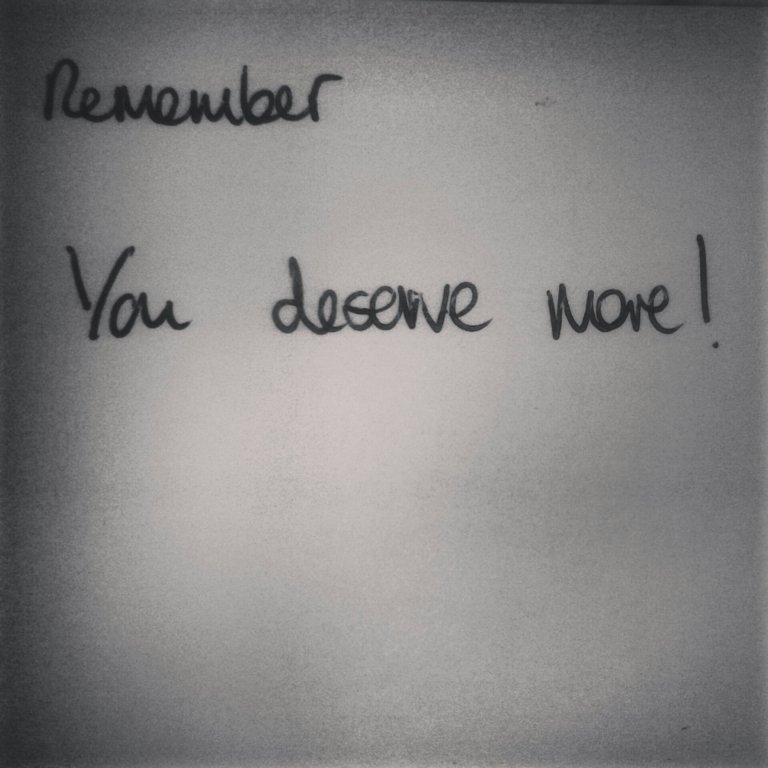 Remember
You deserve more!